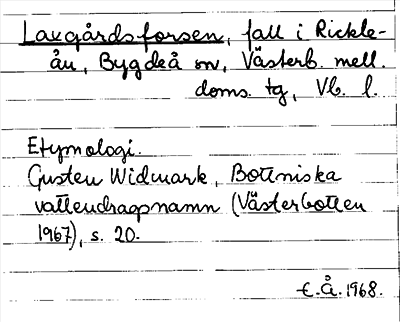 Laxgårdsforsen, fall i Rickle-
ån, Bygdeå sn, Västerb. mell.
doms. tg, Vb. l.
Etymologi.
Gusten Widmark, Bottniska
vattendragsnamn (Västerbotten
1967), s. 20.
E.Å. 1968.